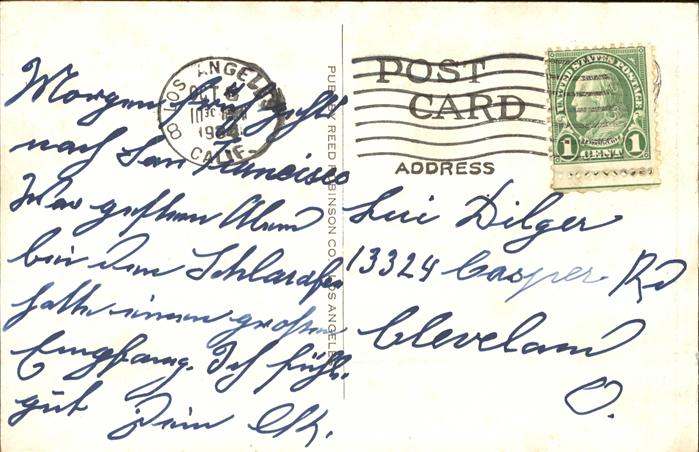 Morgen früh geht's
nach San Francisco
War gestern Abend
bei den Schlaraffen
hatte einen großen
Empfang. Ich fühle
gut Dein
LOS ANGELES
OCT
1934
CALIF.
8
PUB. BY REED ROBINSON CO., LOS ANGELES
POST
CARD
ADDRESS
UNITED STATES POSTAGE
FRANKLIN
1 CENT 1
Lui Dilger
13324 Casper Rd
Cleveland
O.